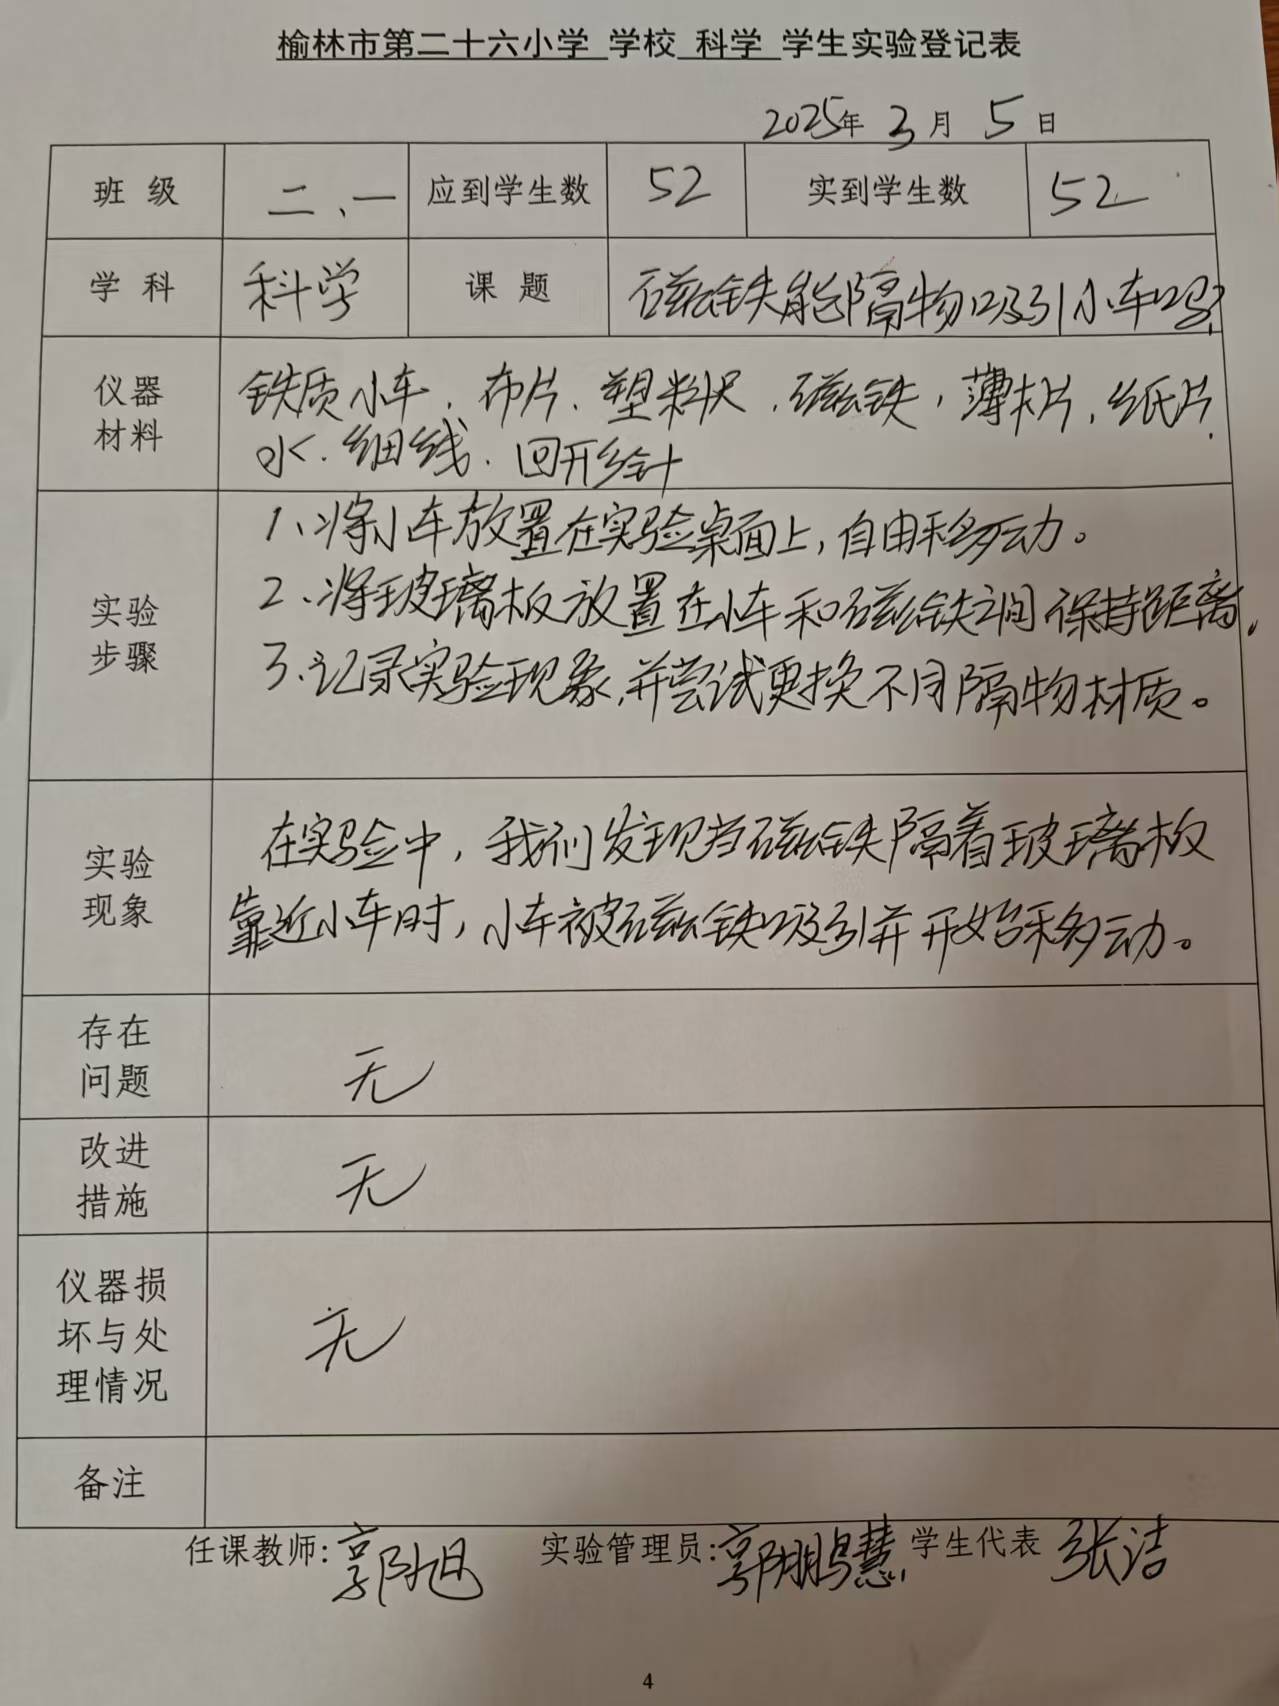 榆林市第二十六小学 学校 科学 学生实验登记表
2025年 3月 5日
班 级 二、一 应到学生数 52 实到学生数 52
学 科 科学 课 题 磁铁能隔物吸引小车吗?
仪器
材料
铁质小车、布片、塑料尺、磁铁,薄木片、纸片、
水、细线、回形针
实验
步骤
1、将小车放置在实验桌面上,自由移动。
2、将玻璃板放置在小车和磁铁之间保持距离。
3、记录实验现象,并尝试更换不同隔物材质。
实验
现象
在实验中,我们发现当磁铁隔着玻璃板
靠近小车时,小车被磁铁吸引并开始移动。
存在
问题
无
改进
措施
无
仪器损
坏与处
理情况
无
备注
任课教师:郭旭 实验管理员:郭鹏慧 学生代表 张洁
4